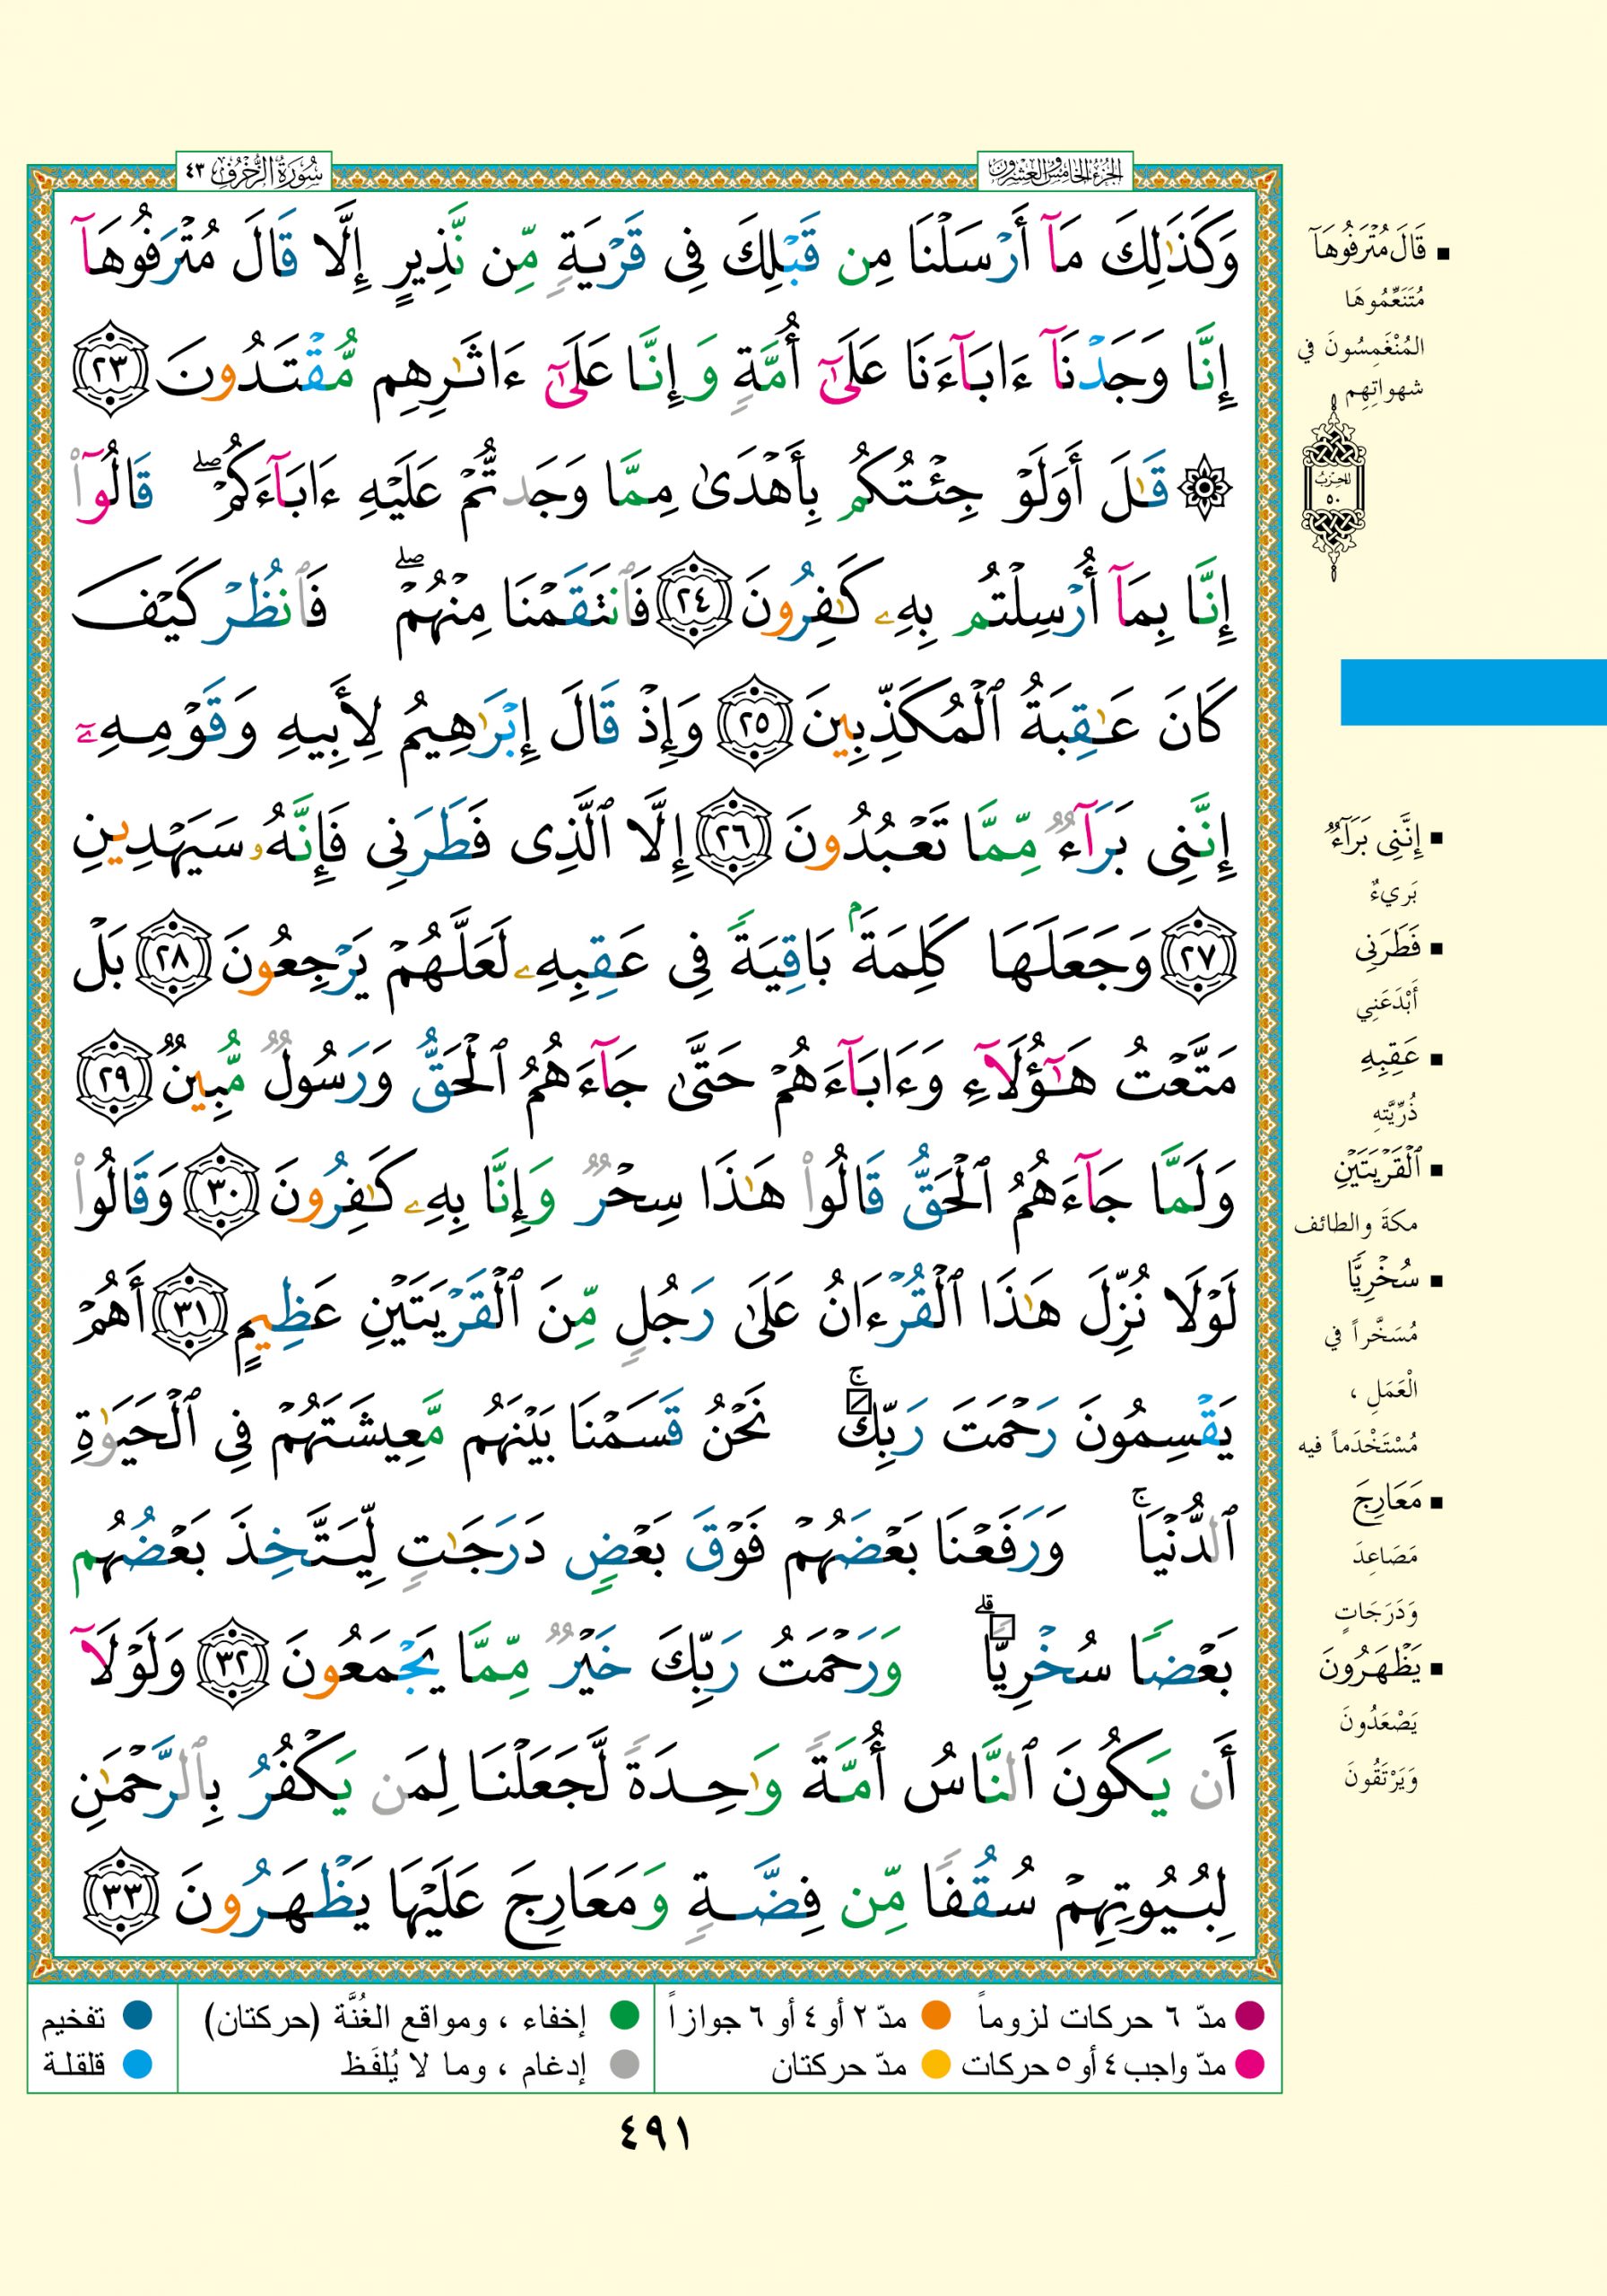 الجزء الخامس والعشرون
سُورَةُ الزُّخْرُف ٤٣
وَكَذَٰلِكَ مَآ أَرْسَلْنَا مِن قَبْلِكَ فِى قَرْيَةٍ مِّن نَّذِيرٍ إِلَّا قَالَ مُتْرَفُوهَآ
إِنَّا وَجَدْنَآ ءَابَآءَنَا عَلَىٰٓ أُمَّةٍ وَإِنَّا عَلَىٰٓ ءَاثَٰرِهِم مُّقْتَدُونَ ٢٣
۞ قَٰلَ أَوَلَوْ جِئْتُكُم بِأَهْدَىٰ مِمَّا وَجَدتُّمْ عَلَيْهِ ءَابَآءَكُمْ ۖ قَالُوٓا۟
إِنَّا بِمَآ أُرْسِلْتُم بِهِۦ كَٰفِرُونَ ٢٤ فَٱنتَقَمْنَا مِنْهُمْ ۖ فَٱنظُرْ كَيْفَ
كَانَ عَٰقِبَةُ ٱلْمُكَذِّبِينَ ٢٥ وَإِذْ قَالَ إِبْرَٰهِيمُ لِأَبِيهِ وَقَوْمِهِۦٓ
إِنَّنِى بَرَآءٌ مِّمَّا تَعْبُدُونَ ٢٦ إِلَّا ٱلَّذِى فَطَرَنِى فَإِنَّهُۥ سَيَهْدِينِ
٢٧ وَجَعَلَهَا كَلِمَةًۢ بَاقِيَةً فِى عَقِبِهِۦ لَعَلَّهُمْ يَرْجِعُونَ ٢٨ بَلْ
مَتَّعْتُ هَٰٓؤُلَآءِ وَءَابَآءَهُمْ حَتَّىٰ جَآءَهُمُ ٱلْحَقُّ وَرَسُولٌ مُّبِينٌ ٢٩
وَلَمَّا جَآءَهُمُ ٱلْحَقُّ قَالُوا۟ هَٰذَا سِحْرٌ وَإِنَّا بِهِۦ كَٰفِرُونَ ٣٠ وَقَالُوا۟
لَوْلَا نُزِّلَ هَٰذَا ٱلْقُرْءَانُ عَلَىٰ رَجُلٍ مِّنَ ٱلْقَرْيَتَيْنِ عَظِيمٍ ٣١ أَهُمْ
يَقْسِمُونَ رَحْمَتَ رَبِّكَ ۚ نَحْنُ قَسَمْنَا بَيْنَهُم مَّعِيشَتَهُمْ فِى ٱلْحَيَوٰةِ
ٱلدُّنْيَا ۚ وَرَفَعْنَا بَعْضَهُمْ فَوْقَ بَعْضٍ دَرَجَٰتٍ لِّيَتَّخِذَ بَعْضُهُم
بَعْضًا سُخْرِيًّا ۗ وَرَحْمَتُ رَبِّكَ خَيْرٌ مِّمَّا يَجْمَعُونَ ٣٢ وَلَوْلَآ
أَن يَكُونَ ٱلنَّاسُ أُمَّةً وَٰحِدَةً لَّجَعَلْنَا لِمَن يَكْفُرُ بِٱلرَّحْمَٰنِ
لِبُيُوتِهِمْ سُقُفًا مِّن فِضَّةٍ وَمَعَارِجَ عَلَيْهَا يَظْهَرُونَ ٣٣
▪ قَالَ مُتْرَفُوهَآ
مُتَنَعِّمُوهَا
المُنْغَمِسُونَ في
شهواتِهِم
الحزب
٥٠
▪ إِنَّنِى بَرَآءٌ
بَريءٌ
▪ فَطَرَنِى
أَبْدَعَنِي
▪ عَقِبِهِ
ذُرِّيَّتِهِ
▪ ٱلْقَرْيَتَيْنِ
مكةَ والطائف
▪ سُخْرِيًّا
مُسَخَّراً في
الْعَمَلِ ،
مُسْتَخْدَماً فيه
▪ مَعَارِجَ
مَصَاعِدَ
وَدَرَجَاتٍ
▪ يَظْهَرُونَ
يَصْعَدُونَ
وَيَرْتَقُونَ
مدّ ٦ حركات لزوماً مدّ ٢ أو ٤ أو ٦ جوازاً إخفاء ، ومواقع الغُنَّة (حركتان) تفخيم
مدّ واجب ٤ أو ٥ حركات مدّ حركتان إدغام ، وما لا يُلفَظ قلقلة
٤٩١